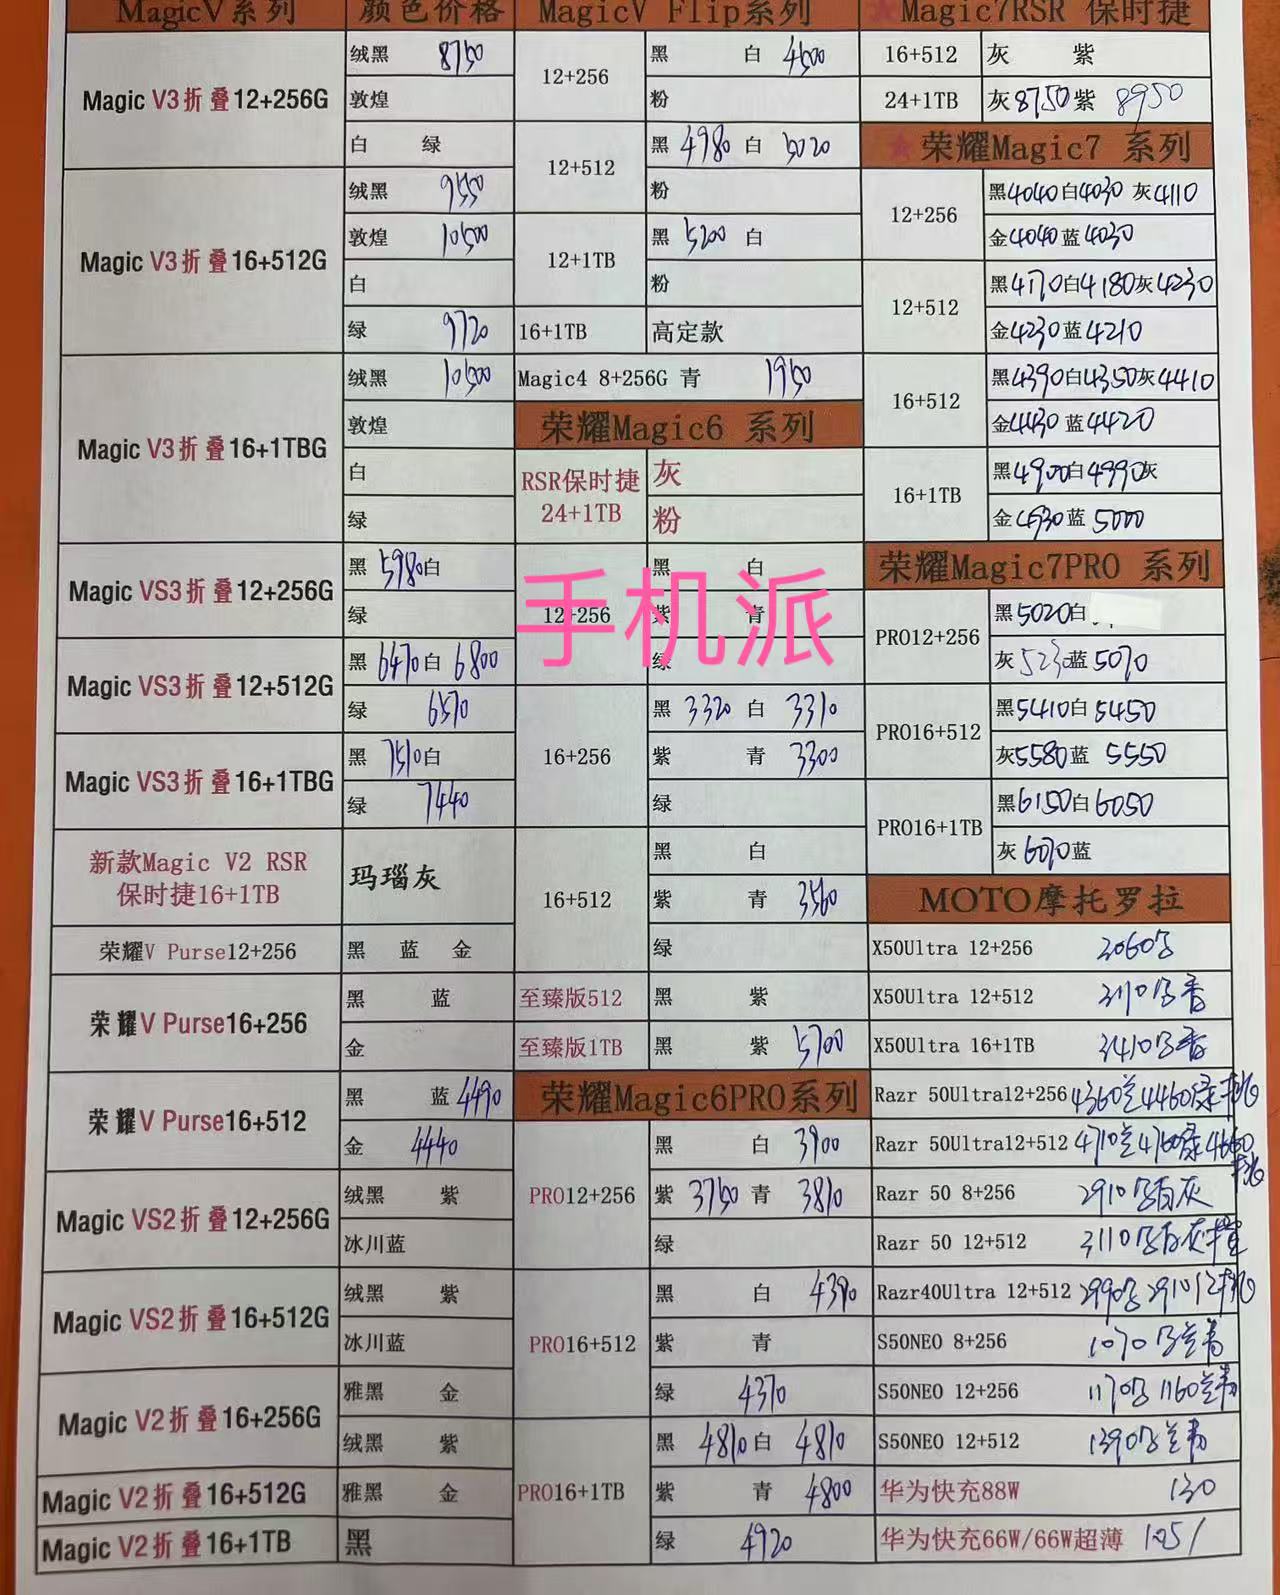 MagicV系列 颜色价格
Magic V3折叠12+256G
绒黑 8750
敦煌
白 绿
Magic V3折叠16+512G
绒黑 9550
敦煌 10500
白
绿 9720
Magic V3折叠16+1TBG
绒黑 10500
敦煌
白
绿
Magic VS3折叠12+256G
黑 5980白
绿
Magic VS3折叠12+512G
黑 6470白 6800
绿 6570
Magic VS3折叠16+1TBG
黑 7510白
绿 7440
新款Magic V2 RSR
保时捷16+1TB
玛瑙灰
荣耀V Purse12+256
黑 蓝 金
荣耀V Purse16+256
黑 蓝
金
荣耀V Purse16+512
黑 蓝 4490
金 4440
Magic VS2折叠12+256G
绒黑 紫
冰川蓝
Magic VS2折叠16+512G
绒黑 紫
冰川蓝
Magic V2折叠16+256G
雅黑 金
绒黑 紫
Magic V2折叠16+512G
雅黑 金
Magic V2折叠16+1TB
黑
MagicV Flip系列
12+256
黑 白 4500
粉
12+512
黑 4980 白 5020
粉
12+1TB
黑 5200 白
粉
16+1TB 高定款
Magic4 8+256G 青 1950
荣耀Magic6 系列
RSR保时捷
24+1TB
灰
粉
手机派
12+256
黑 白
紫 青
绿
16+256
黑 3320 白 3310
紫 青 3300
绿
16+512
黑 白
紫 青 3560
绿
至臻版512 黑 紫
至臻版1TB 黑 紫 5700
荣耀Magic6PRO系列
PRO12+256
黑 白 3900
紫 3750 青 3810
绿
PRO16+512
黑 白 4390
紫 青
绿 4370
PRO16+1TB
黑 4810白 4810
紫 青 4800
绿 4920
★Magic7RSR 保时捷
16+512 灰 紫
24+1TB 灰8750紫 8950
★荣耀Magic7 系列
12+256
黑4040白4030 灰4110
金4040蓝4030
12+512
黑4170白4180灰4230
金4230蓝4210
16+512
黑4390白4350灰4410
金4430蓝4420
16+1TB
黑4900白4990灰
金4930蓝5000
荣耀Magic7PRO 系列
PRO12+256
黑5020白
灰5230蓝5070
PRO16+512
黑5410白5450
灰5580蓝 5550
PRO16+1TB
黑6150白6050
灰6070蓝
MOTO摩托罗拉
X50Ultra 12+256
X50Ultra 12+512
X50Ultra 16+1TB 3410
Razr 50Ultra12+256 4360兰4460绿
Razr 50Ultra12+512 4710兰4760绿4660
Razr 50 8+256 2910
Razr 50 12+512 3110
Razr40Ultra 12+512 2990 2910
S50NEO 8+256 1070
S50NEO 12+256 1170 1160
S50NEO 12+512 1390
华为快充88W 130
华为快充66W/66W超薄 105/